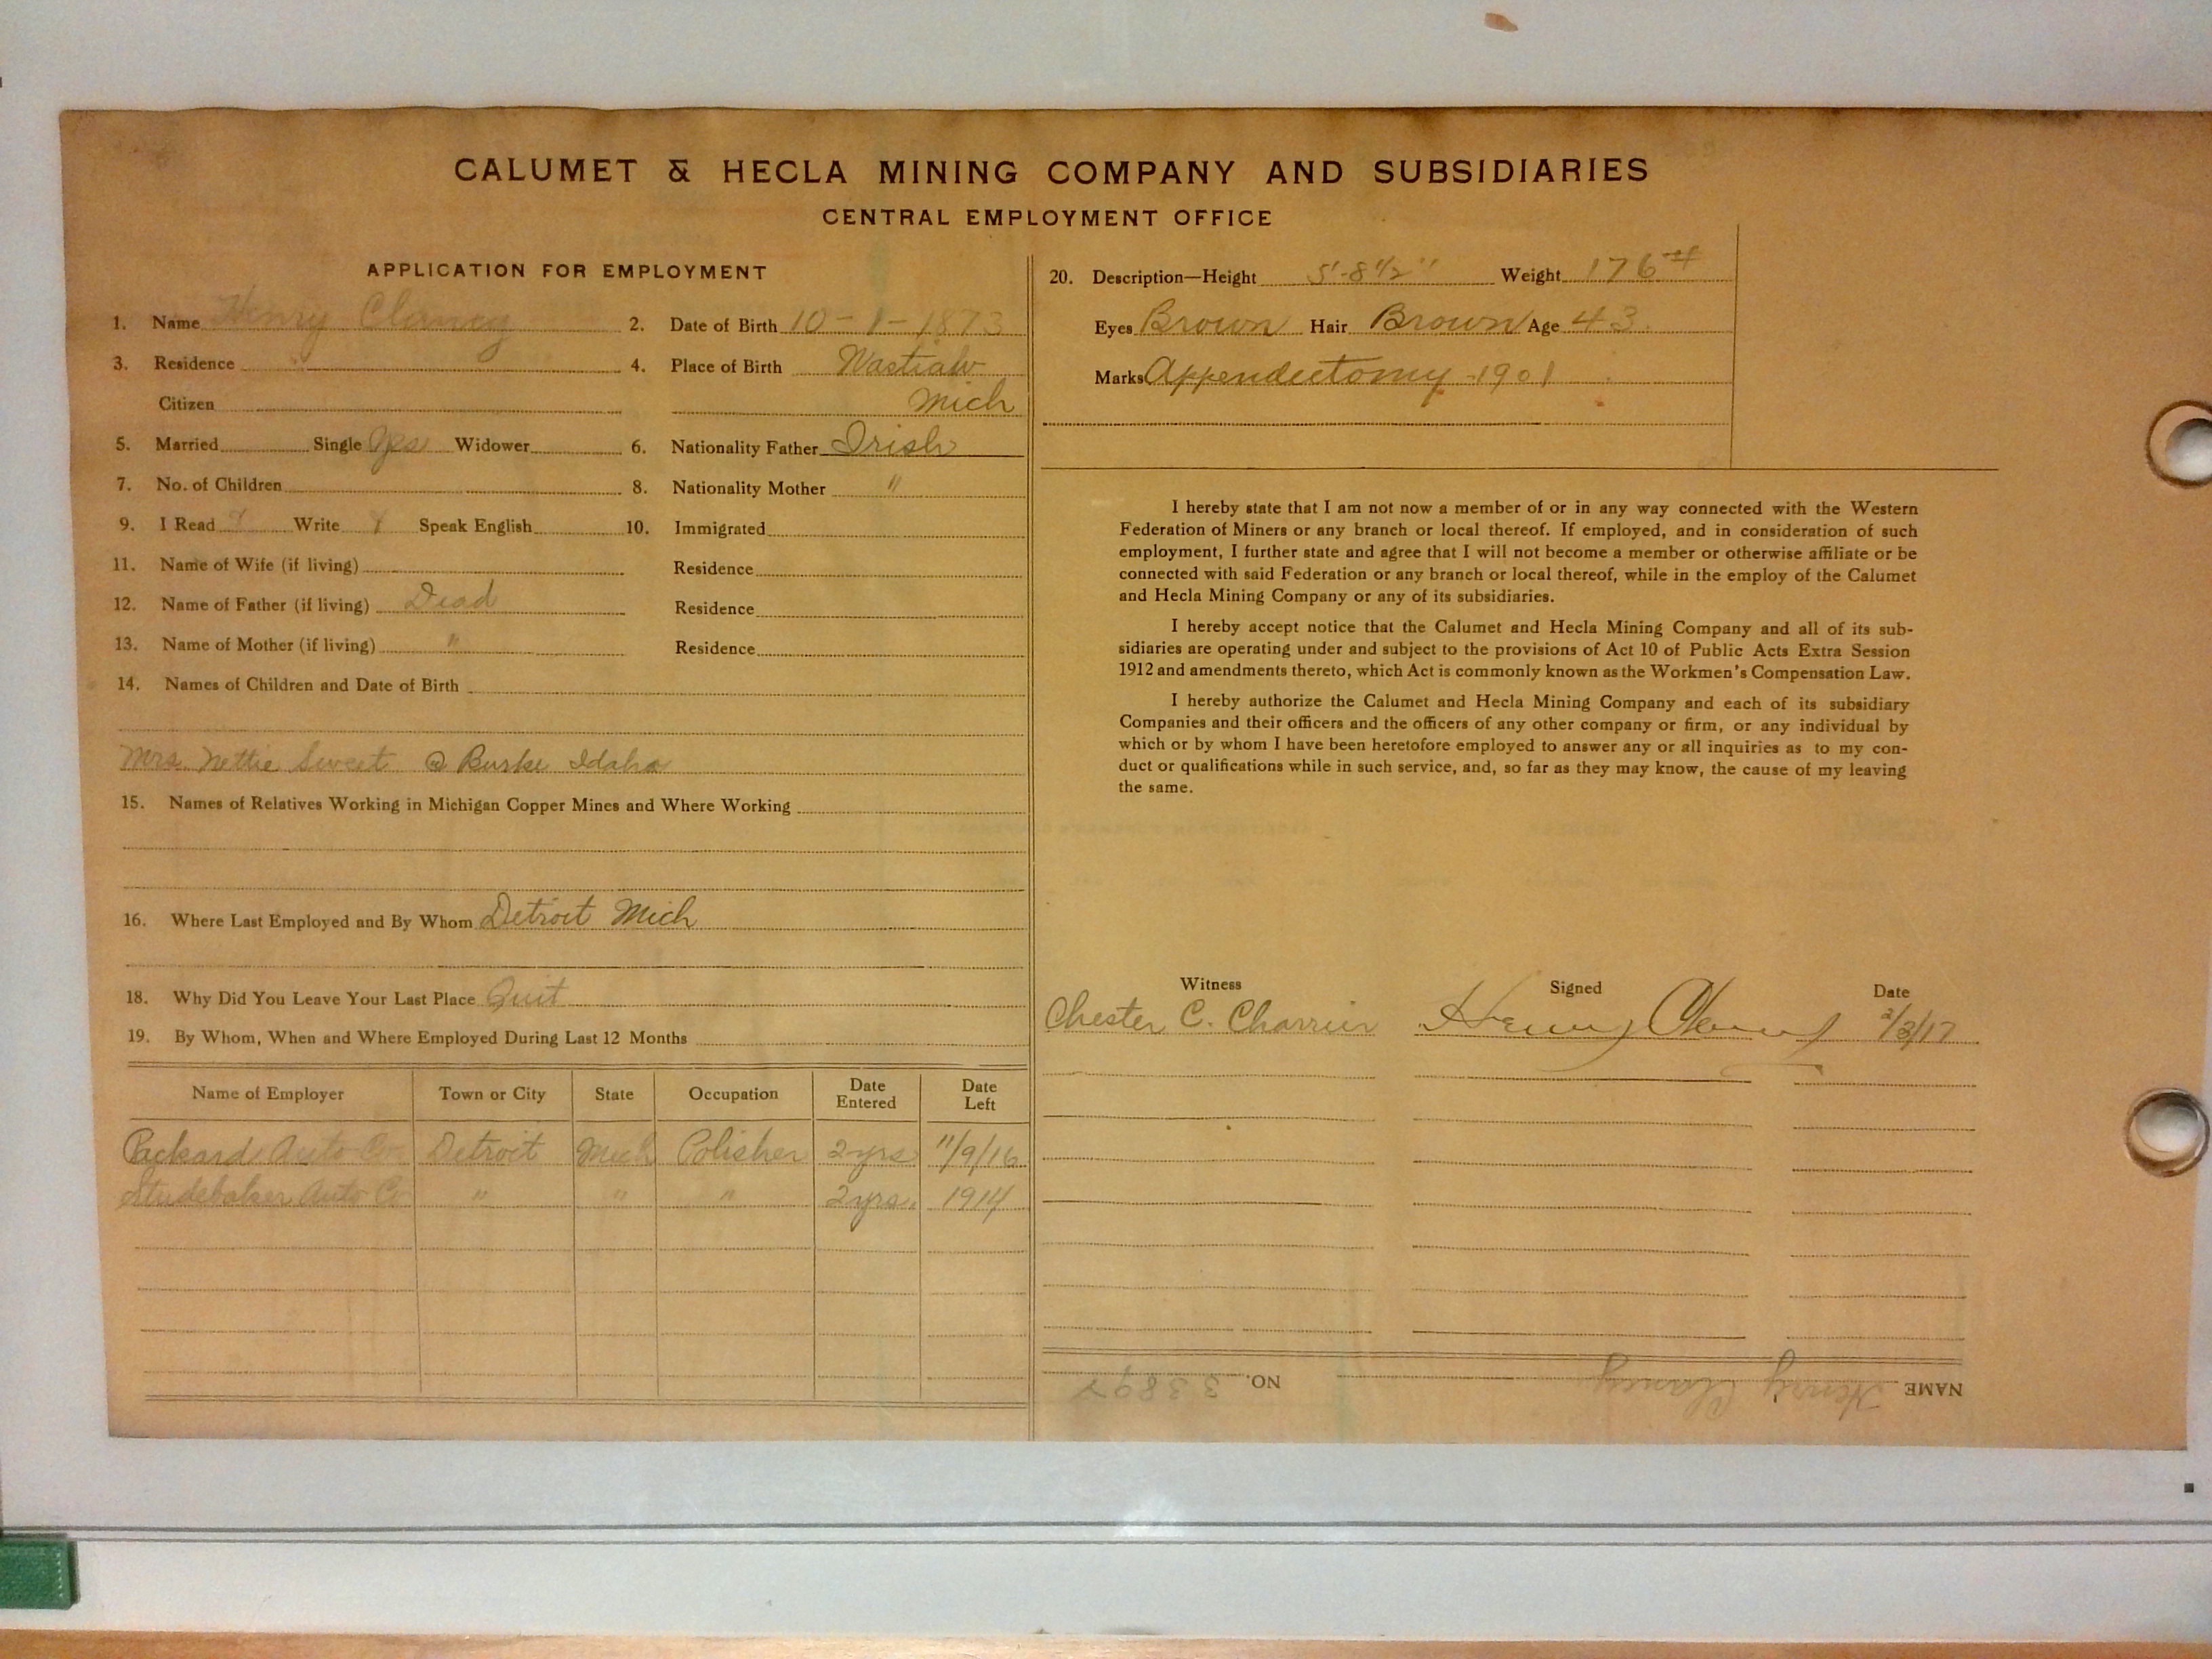 CALUMET & HECLA MINING COMPANY AND SUBSIDIARIES
CENTRAL EMPLOYMENT OFFICE
APPLICATION FOR EMPLOYMENT
1. Name Henry Clancy 2. Date of Birth 10-1-1873
3. Residence 4. Place of Birth
Citizen Mich
5. Married Single Yes Widower 6. Nationality Father Irish
7. No. of Children 8. Nationality Mother "
9. I Read Y Write Y Speak English 10. Immigrated
11. Name of Wife (if living) Residence
12. Name of Father (if living) Dead Residence
13. Name of Mother (if living) " Residence
14. Names of Children and Date of Birth
Mrs. Nettie Sweet @ Burke Idaho
15. Names of Relatives Working in Michigan Copper Mines and Where Working
16. Where Last Employed and By Whom Detroit Mich
18. Why Did You Leave Your Last Place Quit
19. By Whom, When and Where Employed During Last 12 Months
Name of Employer Town or City State Occupation Date Entered Date Left
Packard Auto Co Detroit Mich Polisher 2 yrs 11/9/16
Studebaker Auto Co " " " 2 yrs. 1914
20. Description—Height 5'-8 1/2" Weight 176 #
Eyes Brown Hair Brown Age 43.
Marks Appendectomy-1901
I hereby state that I am not now a member of or in any way connected with the Western
Federation of Miners or any branch or local thereof. If employed, and in consideration of such
employment, I further state and agree that I will not become a member or otherwise affiliate or be
connected with said Federation or any branch or local thereof, while in the employ of the Calumet
and Hecla Mining Company or any of its subsidiaries.
I hereby accept notice that the Calumet and Hecla Mining Company and all of its sub-
sidiaries are operating under and subject to the provisions of Act 10 of Public Acts Extra Session
1912 and amendments thereto, which Act is commonly known as the Workmen's Compensation Law.
I hereby authorize the Calumet and Hecla Mining Company and each of its subsidiary
Companies and their officers and the officers of any other company or firm, or any individual by
which or by whom I have been heretofore employed to answer any or all inquiries as to my con-
duct or qualifications while in such service, and, so far as they may know, the cause of my leaving
the same.
Witness Signed Date
Chester C. Charrier Henry Clancy 2/3/17
NAME Henry Clancy NO. 33892